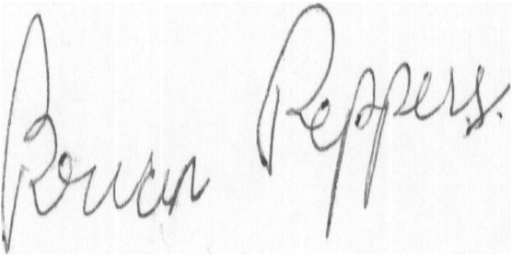 Rowan Peppers.